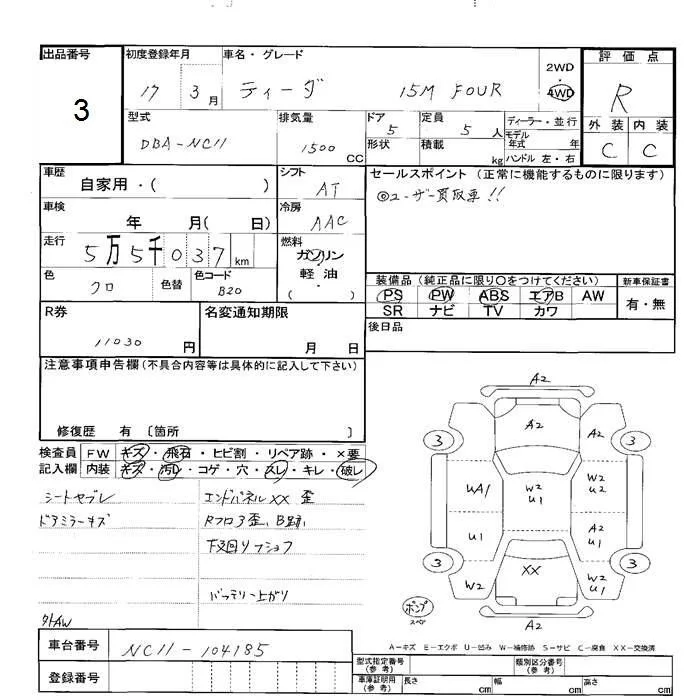 出品番号
3
初度登録年月
17 3月
車名・グレード
ティーダ 15M FOUR
2WD
・
4WD
評価点
R
外装 内装
C C
型式
DBA-NC11
排気量
1500 CC
ドア
5
形状
定員
5人
積載
kg
ディーラー・並行
モデル年式 年
ハンドル 左・右
車歴
自家用・( )
シフト
AT
セールスポイント (正常に機能するものに限ります)
◎ユーザー買取車!!
車検
年 月( 日)
冷房
AAC
走行
5万5千037km
燃料
ガソリン
・
軽油
( )
色
クロ
色替
色コード
B20
装備品 (純正品に限り○をつけてください)
PS PW ABS エアB AW
SR ナビ TV カワ
新車保証書
有・無
R券
11030円
名変通知期限
月 日
後日品
注意事項申告欄(不具合内容等は具体的に記入して下さい)
修復歴 有 〔箇所 〕
検査員記入欄
FW キズ・飛石・ヒビ割・リペア跡・×要
内装 キズ・汚レ・コゲ・穴・スレ・キレ・破レ
シートヤブレ
ドアミラーキズ
エンドパネルXX 歪
Rフロア歪、B跡、
下廻りサビ
バッテリー上がり
外AW
A2
A2
3
3
A2
UA1
W2
U1
W2
U2
U1
A2
U1
3
3
W2
XX
W2
U1
A2
ポンプ
スペア
A-キズ E-エクボ U-凹み W-補修跡 S-サビ C-腐食 XX-交換済
車台番号
NC11-104185
登録番号
型式指定番号
(参考)
類別区分番号
(参考)
車庫証明用
(参考)
長さ cm
幅 cm
高さ cm